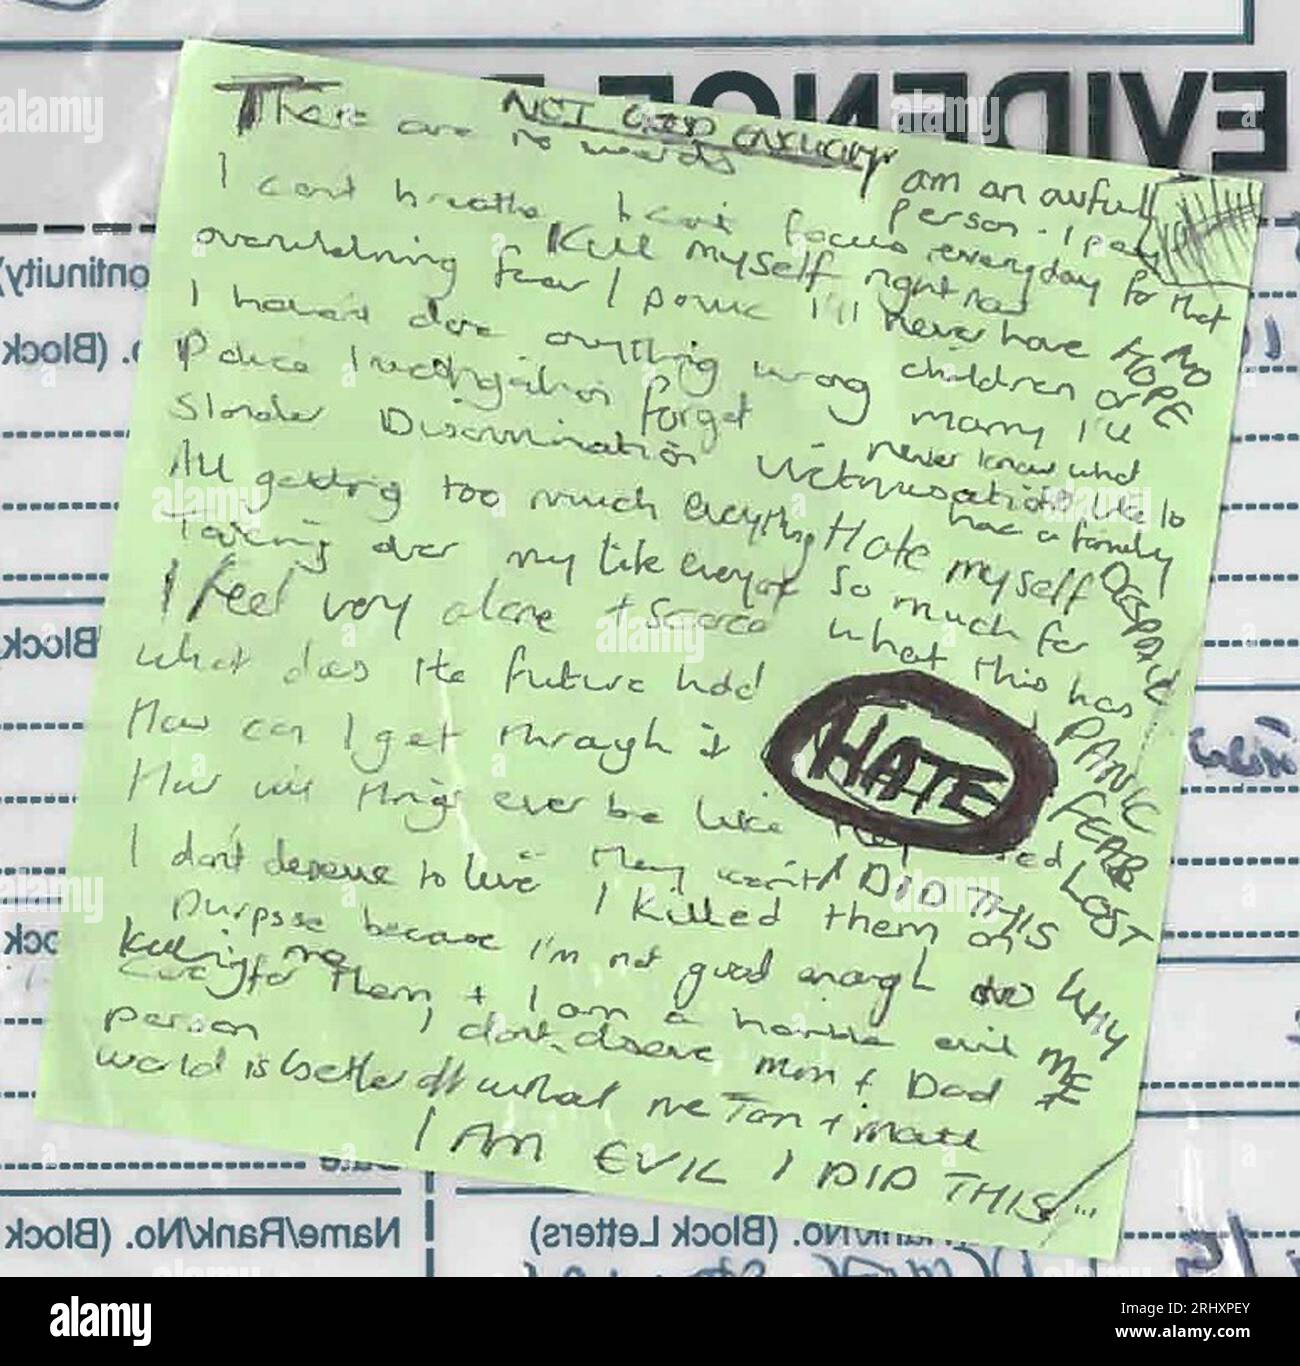 NOT GOOD ENOUGH
There are no words
I am an awful person. I pay everyday for that
I can't breathe I can't focus
Kill myself right now
overwhelming fear / panic I'll never have
I haven't done anything wrong children or
NO HOPE
Police Investigation forget marry I'll
never know what
Slander Discrimination victimisation it's like to
have a family
All getting too much everything Hate myself
Taking over my life everyone so much for
DESPAIR
I feel very alone + scared what this has
What does the future hold
PANIC
How can I get through it
HATE
FEAR
How will things ever be like
LOST
I don't deserve to live They went I DID THIS
I killed them on
purpose because I'm not good enough to WHY
Killing me
care for them + I am a horrible evil ME
person I don't deserve Mum + Dad
world is better off what me Tom + matt
I AM EVIL I DID THIS ...
EVIDENCE
ontinuity)
o. (Block
(Block
ock
Date
Name/Rank/No. (Block
Rank/No. (Block Letters)
alamy
Image ID: 2RHXPEY
www.alamy.com